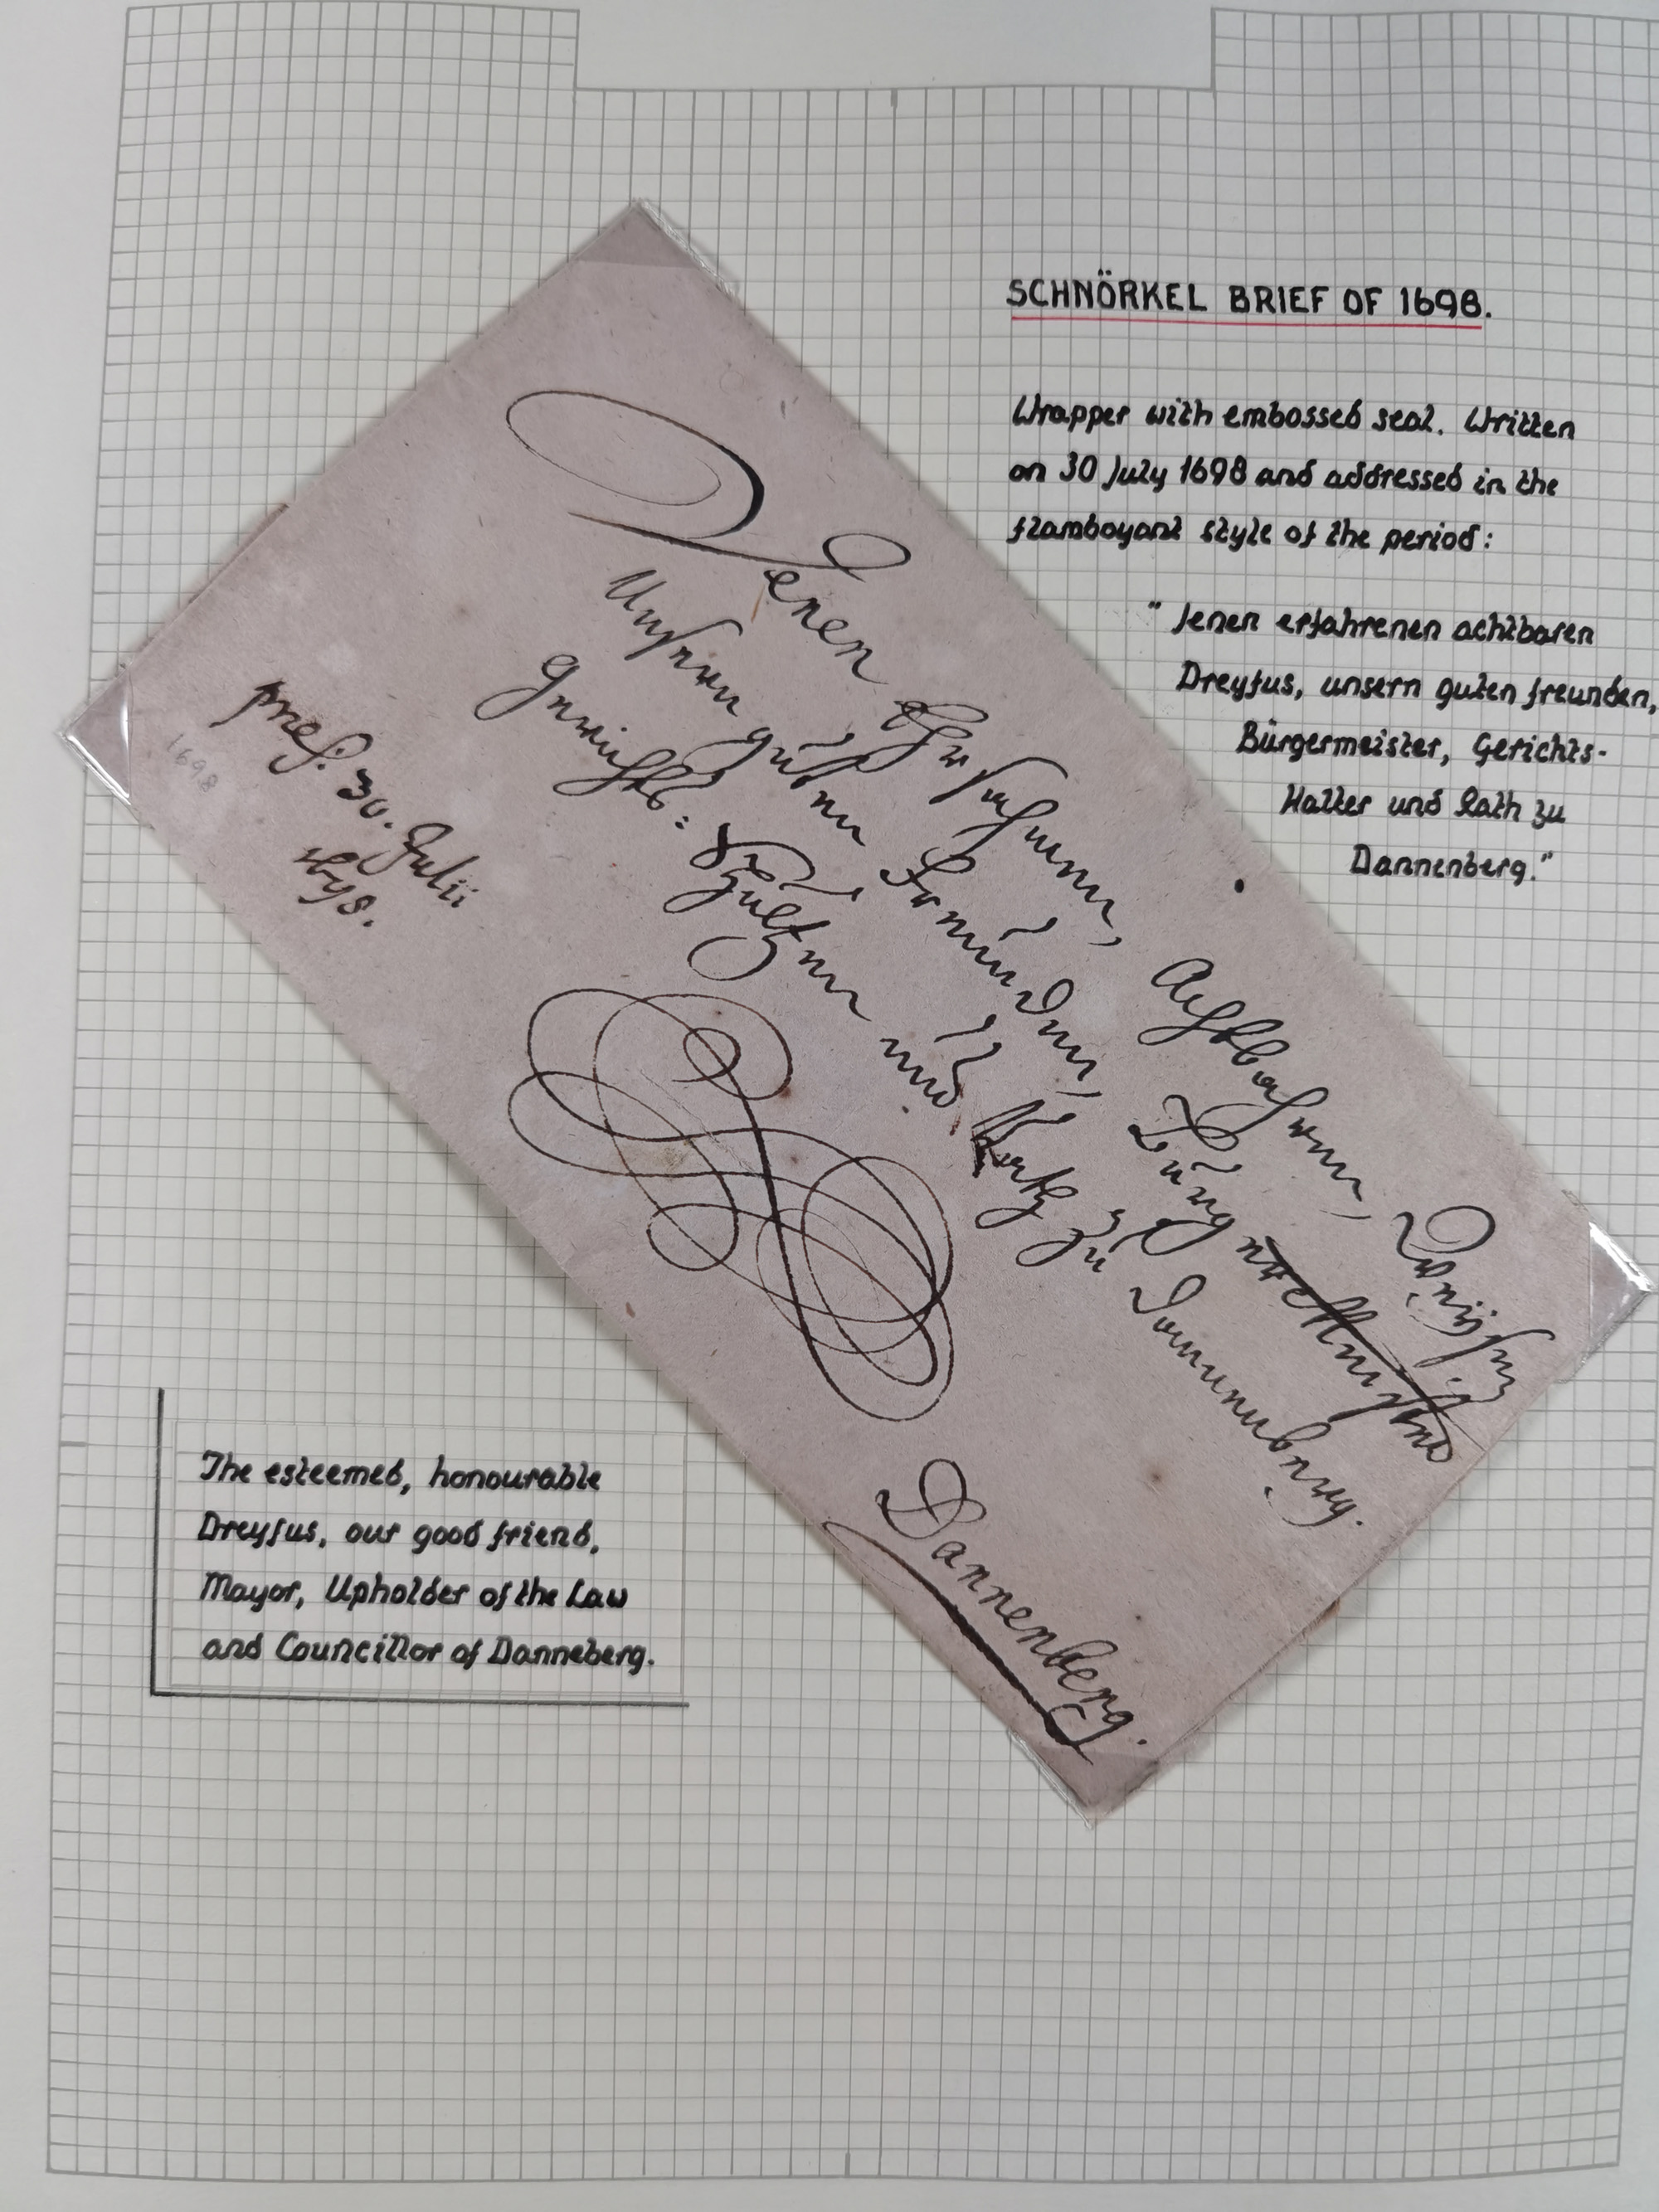 SCHNÖRKEL BRIEF OF 1698.
Wrapper with embossed seal. Written
on 30 July 1698 and addressed in the
flamboyant style of the period:
" Jenen erfahrenen achtbaren
Dreyfus, unsern guten freunden,
Bürgermeister, Gerichts-
Halter und Rath zu
Dannenberg."
Denen Achtbahren,
Unsern guten Freunden, Bürgermeistere
Gerichts: Schultzen und Rath zu Dannenberg.
Dannenberg.
præs. 30. Julii
1698
The esteemed, honourable
Dreyfus, our good friend,
Mayor, Upholder of the Law
and Councillor of Danneberg.